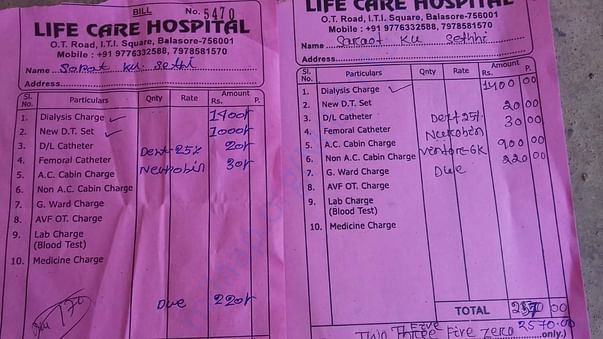 BILL No. 5470
LIFE CARE HOSPITAL
O.T. Road, I.T.I. Square, Balasore-756001
Mobile : +91 9776332588, 7978581570
Name Sarat Ku. Sethi
Address
Sl. No. Particulars Qnty Rate Amount Rs. P.
1. Dialysis Charge ✓ 1400/-
2. New D.T. Set ✓ 1000/-
3. D/L Catheter Dext-25% 20/-
4. Femoral Catheter Neurobin 30/-
5. A.C. Cabin Charge
6. Non A.C. Cabin Charge
7. G. Ward Charge
8. AVF OT. Charge
9. Lab Charge
(Blood Test)
10. Medicine Charge
Due 220/-
LIFE CARE HOSPITAL
O.T. Road, I.T.I. Square, Balasore-756001
Mobile : +91 9776332588, 7978581570
Name Sarat Ku Sethi
Address
Sl. No. Particulars Qnty Rate Amount Rs. P.
1. Dialysis Charge ✓ 1400 00
2. New D.T. Set
3. D/L Catheter Dext 25% 20 00
4. Femoral Catheter Neurobin 30 00
5. A.C. Cabin Charge 900 00
6. Non A.C. Cabin Charge Due 220 00
7. G. Ward Charge
8. AVF OT. Charge
9. Lab Charge
(Blood Test)
10. Medicine Charge
TOTAL 2570 00
Five 2570.00
Two Three Five Zero only.)